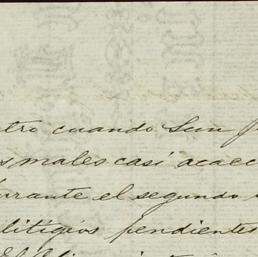 tro cuando Sun
s males casi acaec
urante el segundo
litigios pendientes